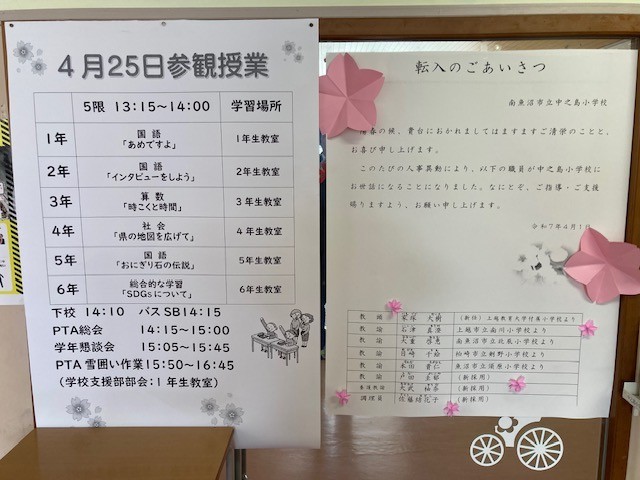 4月25日参観授業
5限 13:15~14:00 学習場所
1年 国語「あめですよ」 1年生教室
2年 国語「インタビューをしよう」 2年生教室
3年 算数「時こくと時間」 3年生教室
4年 社会「県の地図を広げて」 4年生教室
5年 国語「おにぎり石の伝説」 5年生教室
6年 総合的な学習「SDGsについて」 6年生教室
下校 14:10 バスSB14:15
PTA総会 14:15~15:00
学年懇談会 15:05~15:45
PTA 雪囲い作業15:50~16:45
(学校支援部部会:1年生教室)
転入のごあいさつ
南魚沼市立中之島小学校
春の候、貴台におかれましてはますますご清学のことと、
お喜び申し上げます。
このたびの人事異動により、以下の職員が中之島小学校に
お世話になることになりました。なにとぞ、ご指導・ご支援
賜りますよう、お願い申し上げます。
令和7年4月1日
教諭 大樹 (新任) 上越教育大学付属小学校より
教諭 石津 上越市立南川小学校より
教諭 南魚沼市立北辰小学校より
教諭 千嘉 柏崎市立剣野小学校より
教諭 本田 貴仁 魚沼市立須原小学校より
教諭 戸田 (新採用)
養護教諭 (新採用)
調理員 佐藤 子 (新採用)